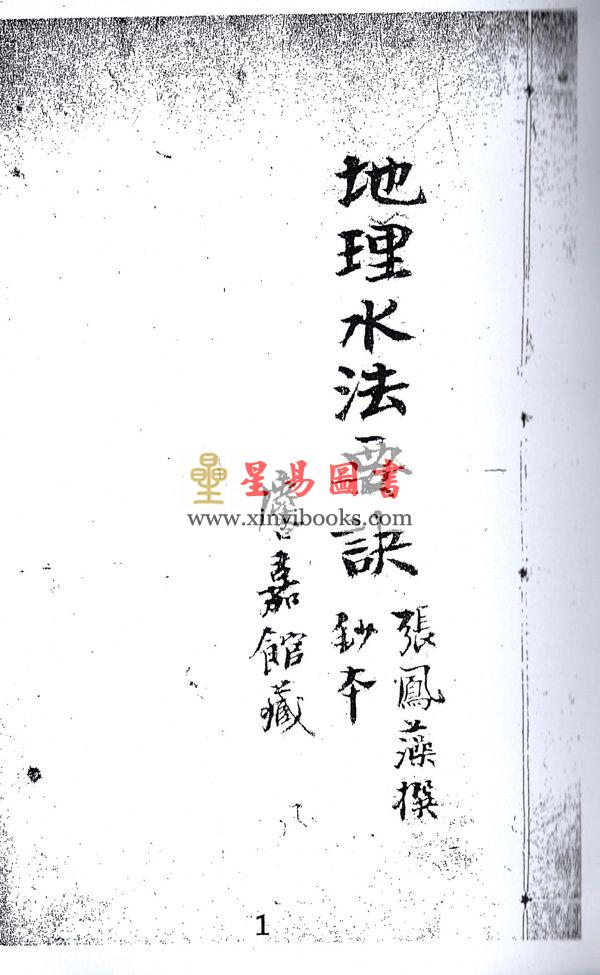 地理水法要訣
張鳳藻撰
鈔本
嘉館藏
星易圖書
www.xinyibooks.com
1